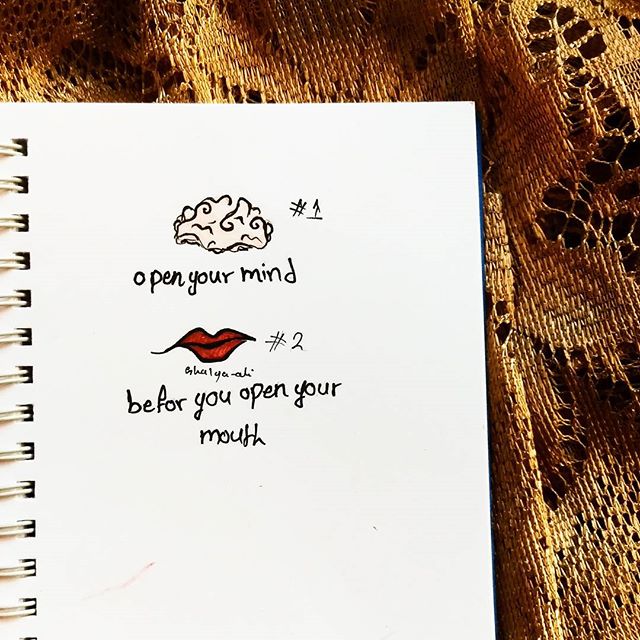 #1
open your mind
#2
befor you open your
mouth